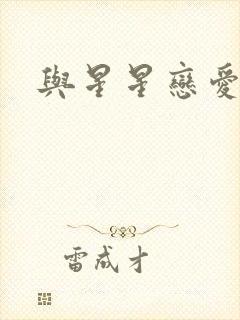 與星星戀愛
雷成才